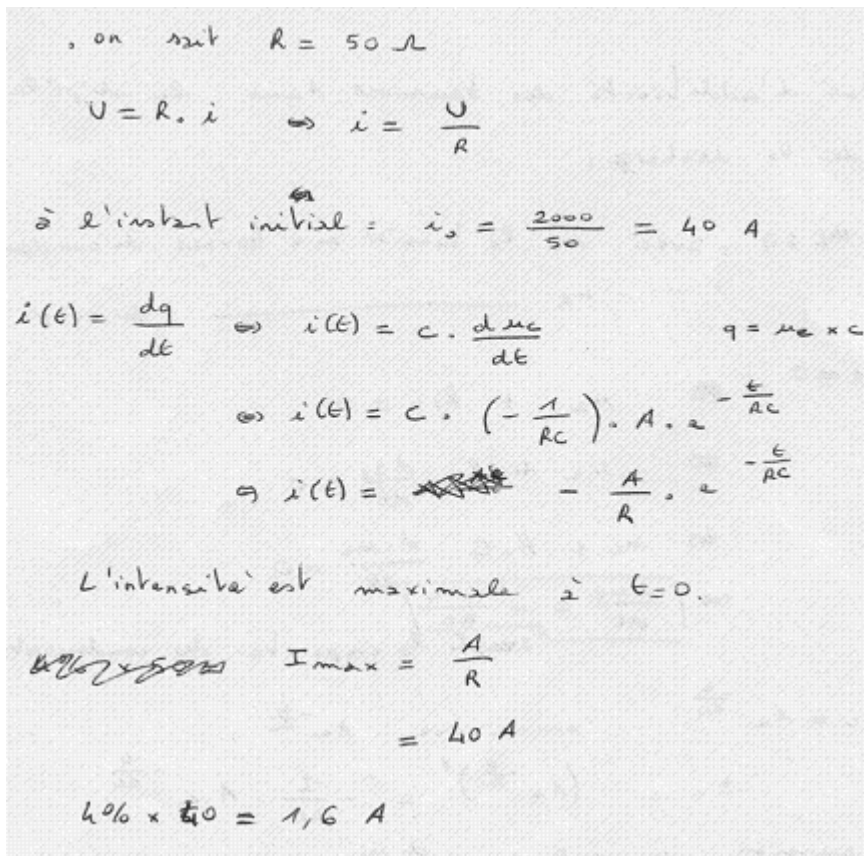 , on sait R = 50 Ω
U = R. i ⇔ i = U/R
à l'instant initial : i₀ = 2000/50 = 40 A
i(t) = dq/dt ⇔ i(t) = c . d uc/dt q = uc × c
⇔ i(t) = c . (- 1/RC). A. e^(- t/RC)
⇔ i(t) = - A/R . e^(- t/RC)
L'intensité est maximale à t=0.
I max = A/R
= 40 A
4% × 40 = 1,6 A